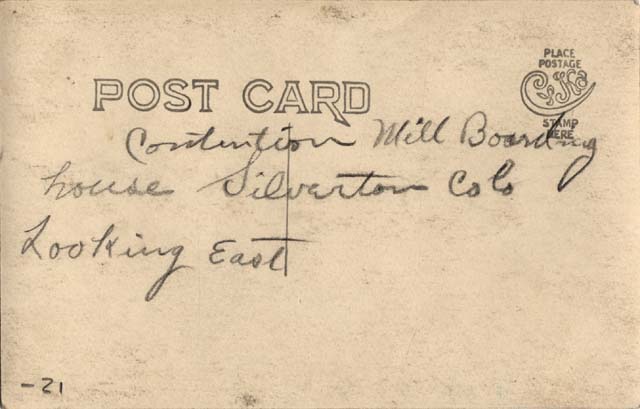 PLACE
POSTAGE
CYKO
STAMP
HERE
POST CARD
Contention Mill Boarding
house Silverton Colo
Looking East
-21